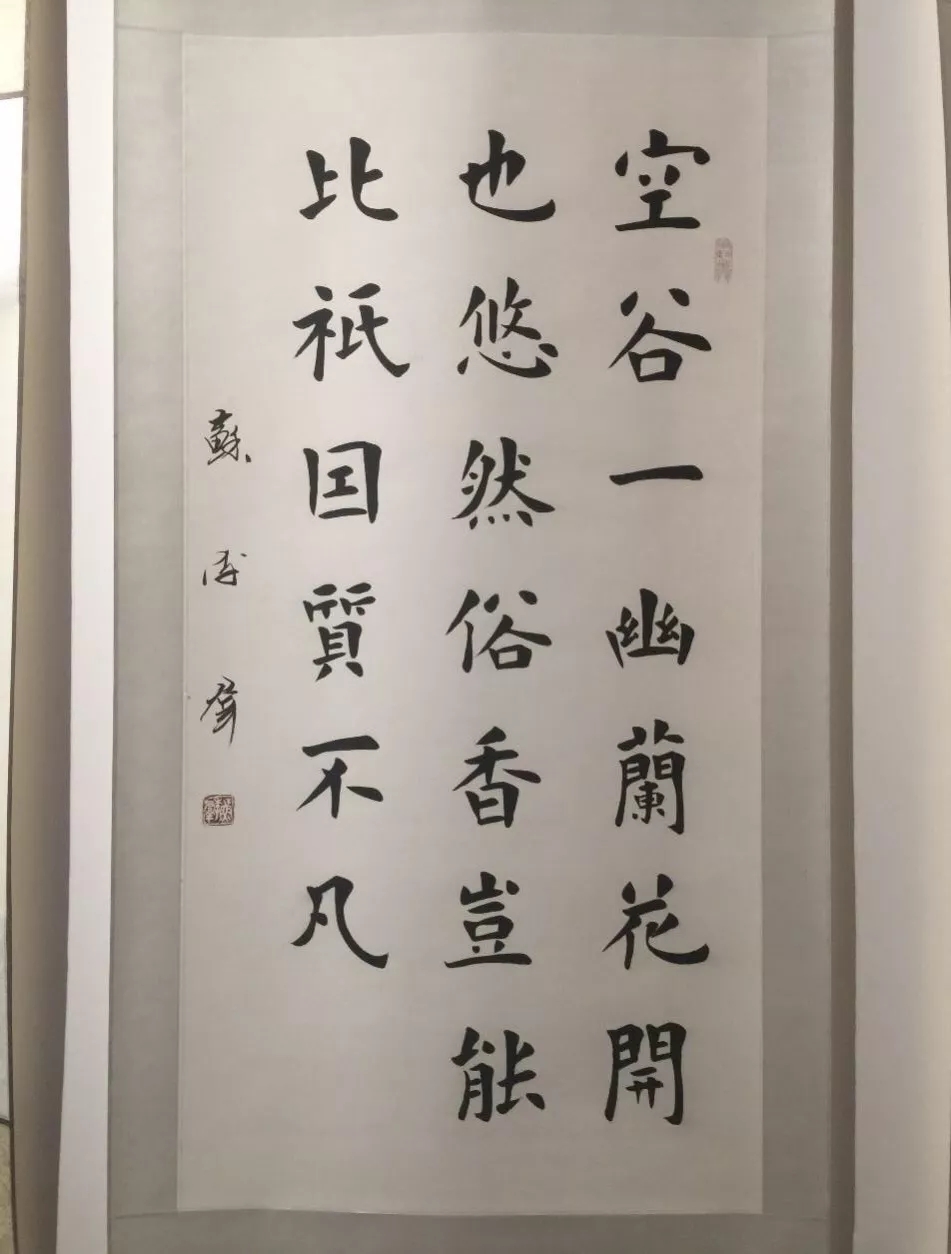 空谷一幽蘭花開
也悠然俗香豈能
比祇囙質不凡
蘇